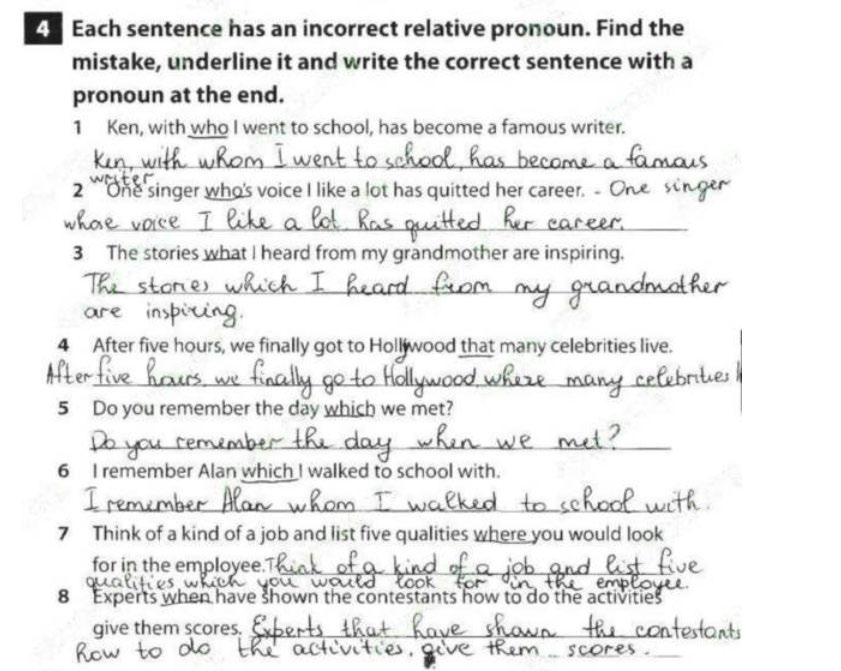 4 Each sentence has an incorrect relative pronoun. Find the
mistake, underline it and write the correct sentence with a
pronoun at the end.
1 Ken, with who I went to school, has become a famous writer.
Ken, with whom I went to school, has become a famous
writer.
2 One singer who's voice I like a lot has quitted her career. - One singer
whose voice I like a lot has quitted her career.
3 The stories what I heard from my grandmother are inspiring.
The stories which I heard from my grandmother
are inspiring.
4 After five hours, we finally got to Hollywood that many celebrities live.
After five hours, we finally go to Hollywood where many celebrities
5 Do you remember the day which we met?
Do you remember the day when we met?
6 I remember Alan which I walked to school with.
I remember Alan whom I walked to school with.
7 Think of a kind of a job and list five qualities where you would look
for in the employee. Think of a kind of a job and list five
qualities which you would look for in the employee.
8 Experts when have shown the contestants how to do the activities
give them scores. Experts that have shown the contestants
how to do the activities, give them scores.